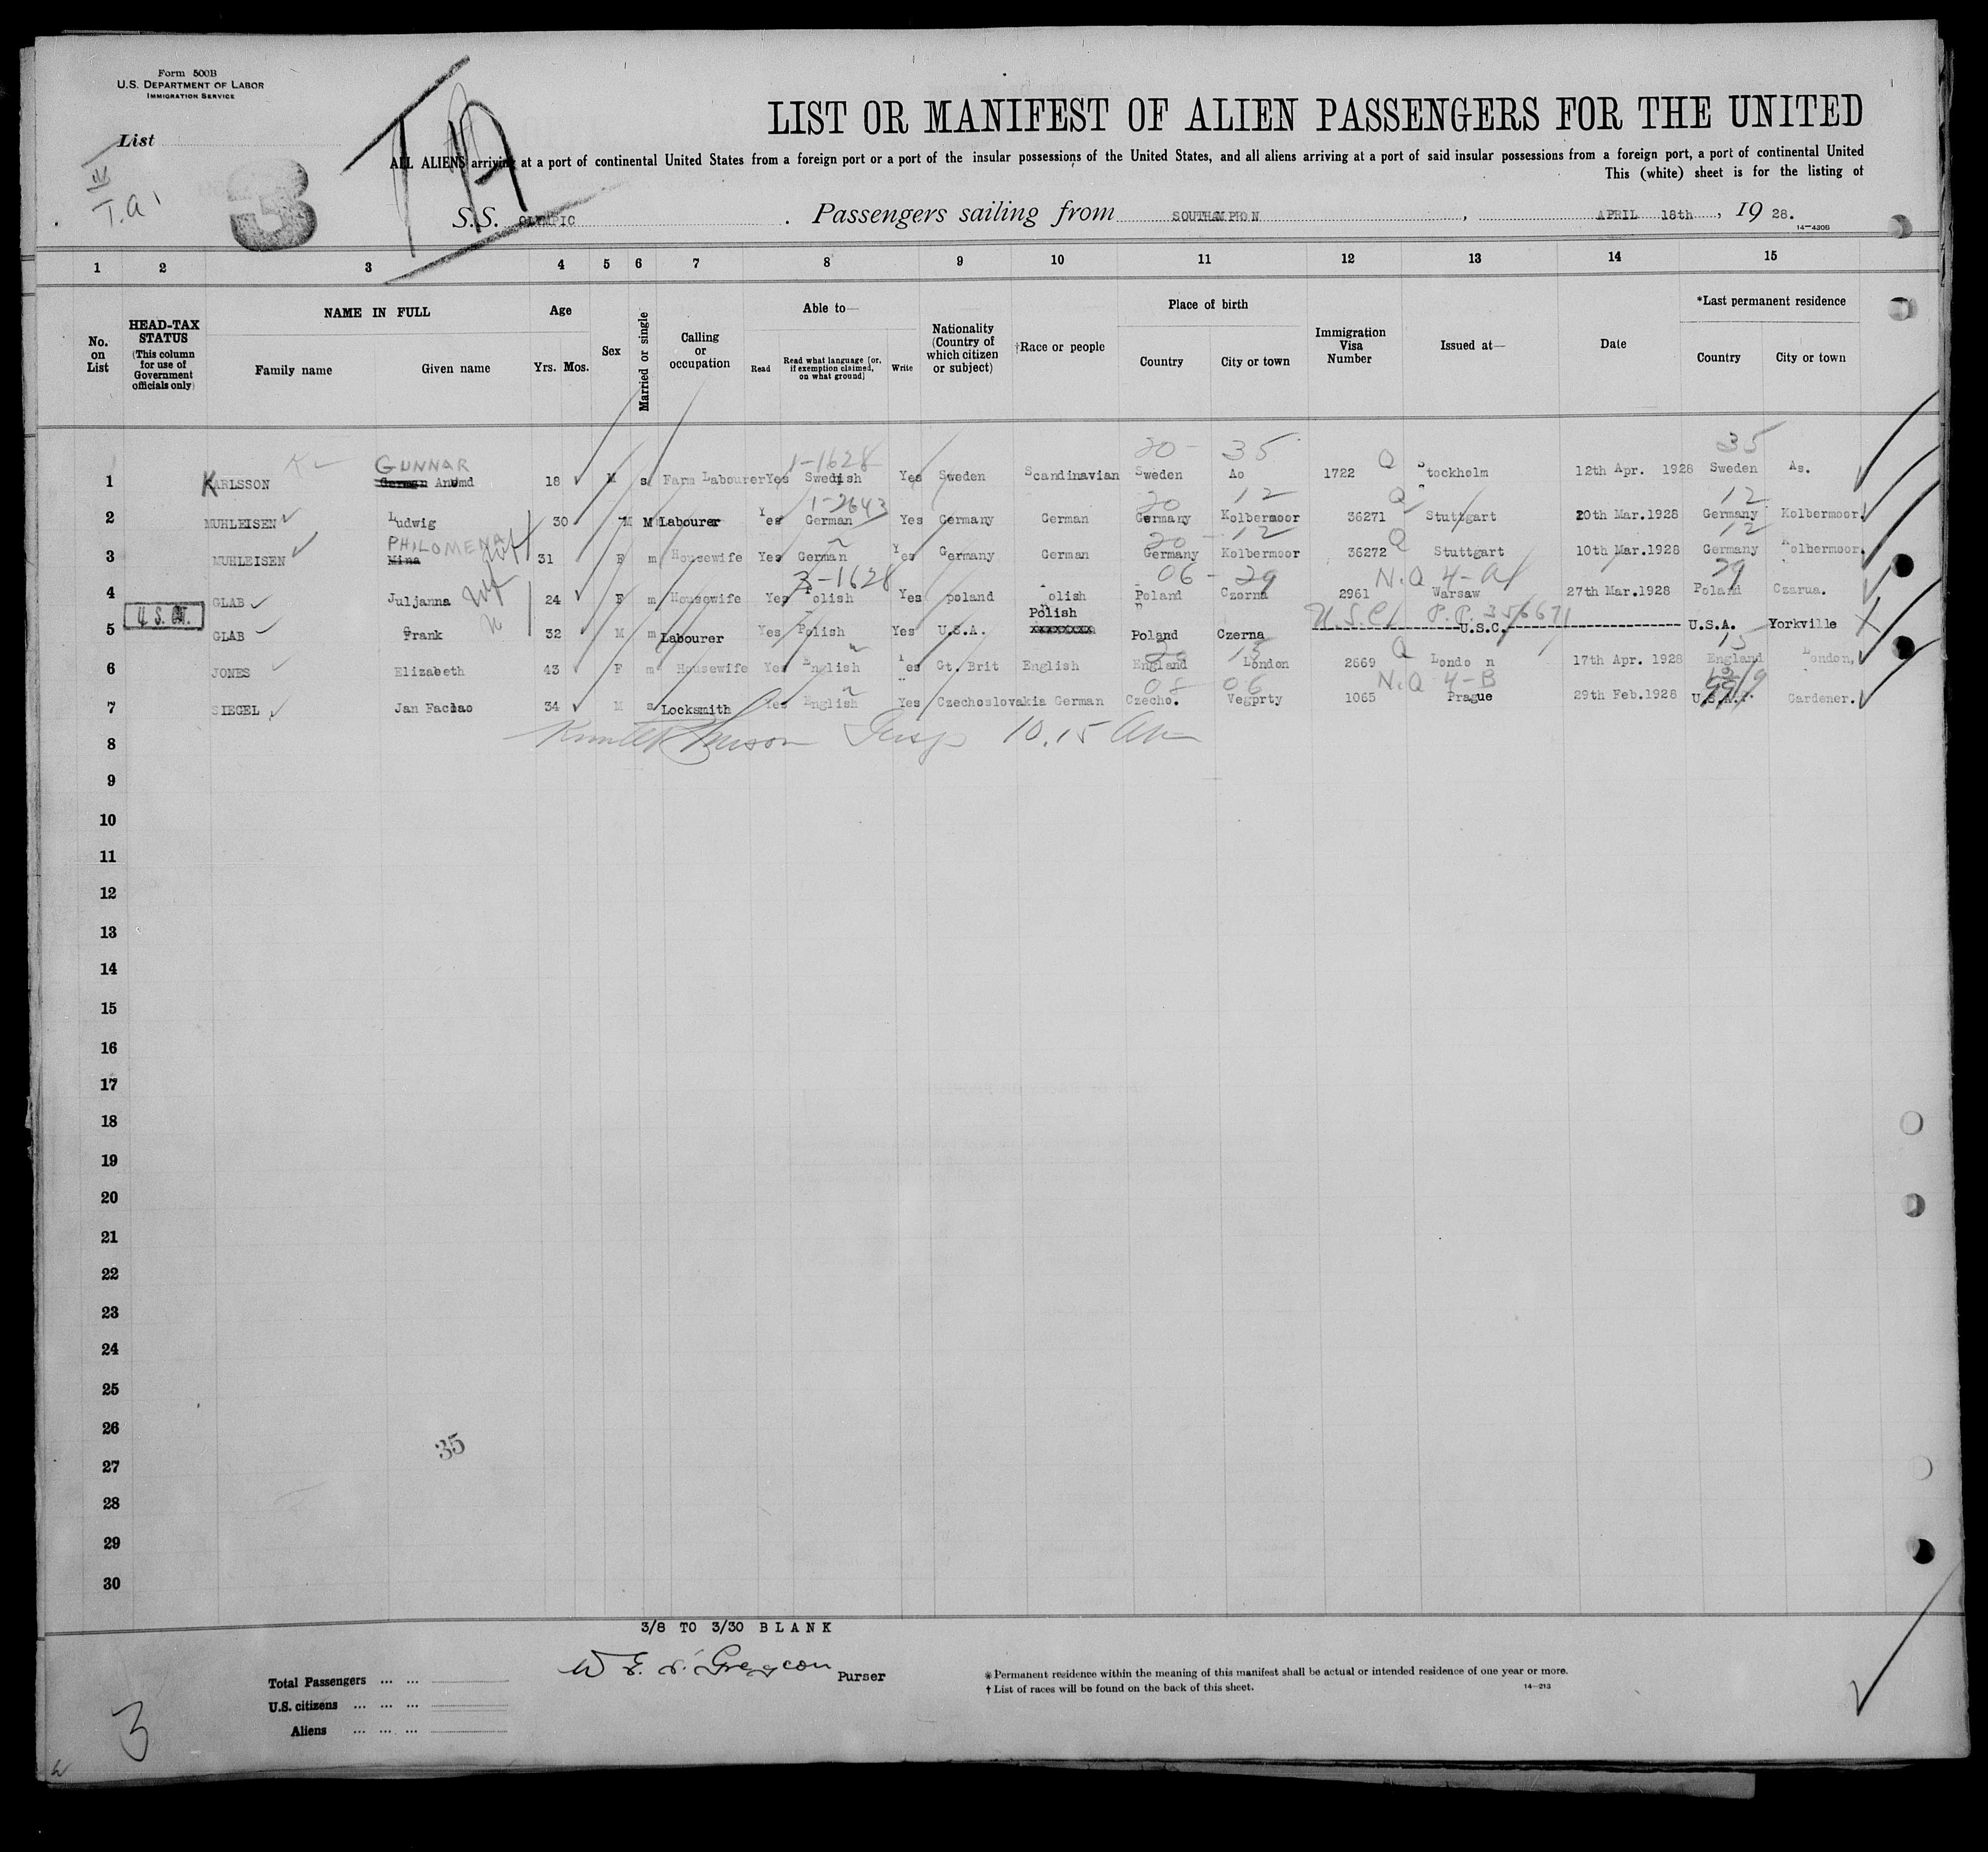 Form 500B
U.S. DEPARTMENT OF LABOR
IMMIGRATION SERVICE
List
III
T.a.
3
TA
LIST OR MANIFEST OF ALIEN PASSENGERS FOR THE UNITED
ALL ALIENS arriving at a port of continental United States from a foreign port or a port of the insular possessions of the United States, and all aliens arriving at a port of said insular possessions from a foreign port, a port of continental United
This (white) sheet is for the listing of
S.S. OLYMPIC . Passengers sailing from SOUTHAMPTON , APRIL 18th , 19 28.
14—430B
1 2 3 4 5 6 7 8 9 10 11 12 13 14 15
No. on List
HEAD-TAX STATUS (This column for use of Government officials only)
NAME IN FULL
Family name Given name
Age
Yrs. Mos.
Sex
Married or single
Calling or occupation
Able to—
Read Read what language [or, if exemption claimed, on what ground] Write
Nationality (Country of which citizen or subject)
†Race or people
Place of birth
Country City or town
Immigration Visa Number
Issued at—
Date
*Last permanent residence
Country City or town
GUNNAR 1-1628 20 - 35 Q 35
1 KARLSSON German Anumd 18 M s Farm Labourer Yes Swedish Yes Sweden Scandinavian Sweden Ao 1722 Stockholm 12th Apr. 1928 Sweden As.
1-2643 20 12 Q 12
2 MUHLEISEN Ludwig 30 M M Labourer Yes German Yes Germany German Germany Kolbermoor 36271 Stuttgart 20th Mar.1928 Germany Kolbermoor.
PHILOMENA 20 - 12 Q 12
3 MUHLEISEN Mina 31 F m Housewife Yes German Yes Germany German Germany Kolbermoor 36272 Stuttgart 10th Mar.1928 Germany Kolbermoor.
3-1628 06 - 29 N.Q 4-a 29
4 GLAB Juljanna 24 F m Housewife Yes Polish Yes poland Polish Poland Czerna 2961 Warsaw 27th Mar.1928 Poland Czarua.
U.S. CIT. Polish U.S.C. P.P. 356671
5 GLAB Frank 32 M m Labourer Yes Polish Yes U.S.A. xxxxxxxx Poland Czerna U.S.C. U.S.A. Yorkville
20 15 Q 15
6 JONES Elizabeth 43 F m Housewife Yes English Yes Gt. Brit English England London 2669 Londo n 17th Apr. 1928 England London,
08 06 N.Q 4-B
7 SIEGEL Jan Faclao 34 M s Locksmith Yes English Yes Czechoslovakia German Czecho. Vegprty 1065 Prague 29th Feb.1928 U.S.A. Gardener.
8 10.15 Am
9
10
11
12
13
14
15
16
17
18
19
20
21
22
23
24
25
26
35
27
28
29
30
3/8 TO 3/30 BLANK
Purser
Total Passengers ... ...
U.S. citizens ... ... ...
Aliens ... ... ...
* Permanent residence within the meaning of this manifest shall be actual or intended residence of one year or more.
† List of races will be found on the back of this sheet.
14—213
3